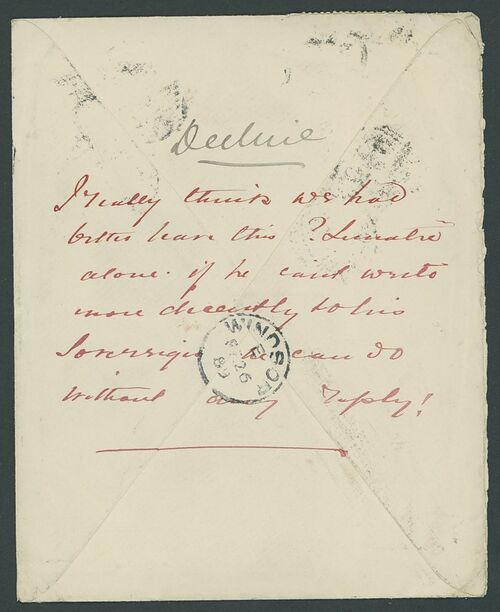 Decline
I really think we had
better leave this ? Lunatic
alone. if he can't write
more decently to his
Sovereign he can do
without any reply!
WINDSOR
E
26
89